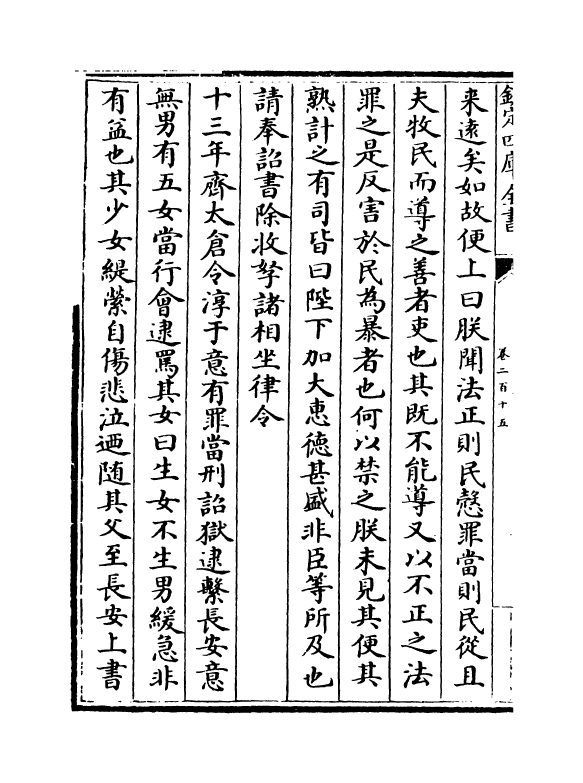 欽定四庫全書
卷二百十五
来逺矣如故便上曰朕聞法正則民慤罪當則民從且
夫牧民而導之善者吏也其既不能導又以不正之法
罪之是反害於民為暴者也何以禁之朕未見其便其
熟計之有司皆曰陛下加大恵徳甚盛非臣等所及也
請奉詔書除收孥諸相坐律令
十三年齊太倉令淳于意有罪當刑詔獄逮繫長安意
無男有五女當行會逮罵其女曰生女不生男緩急非
有益也其少女緹縈自傷悲泣廼随其父至長安上書